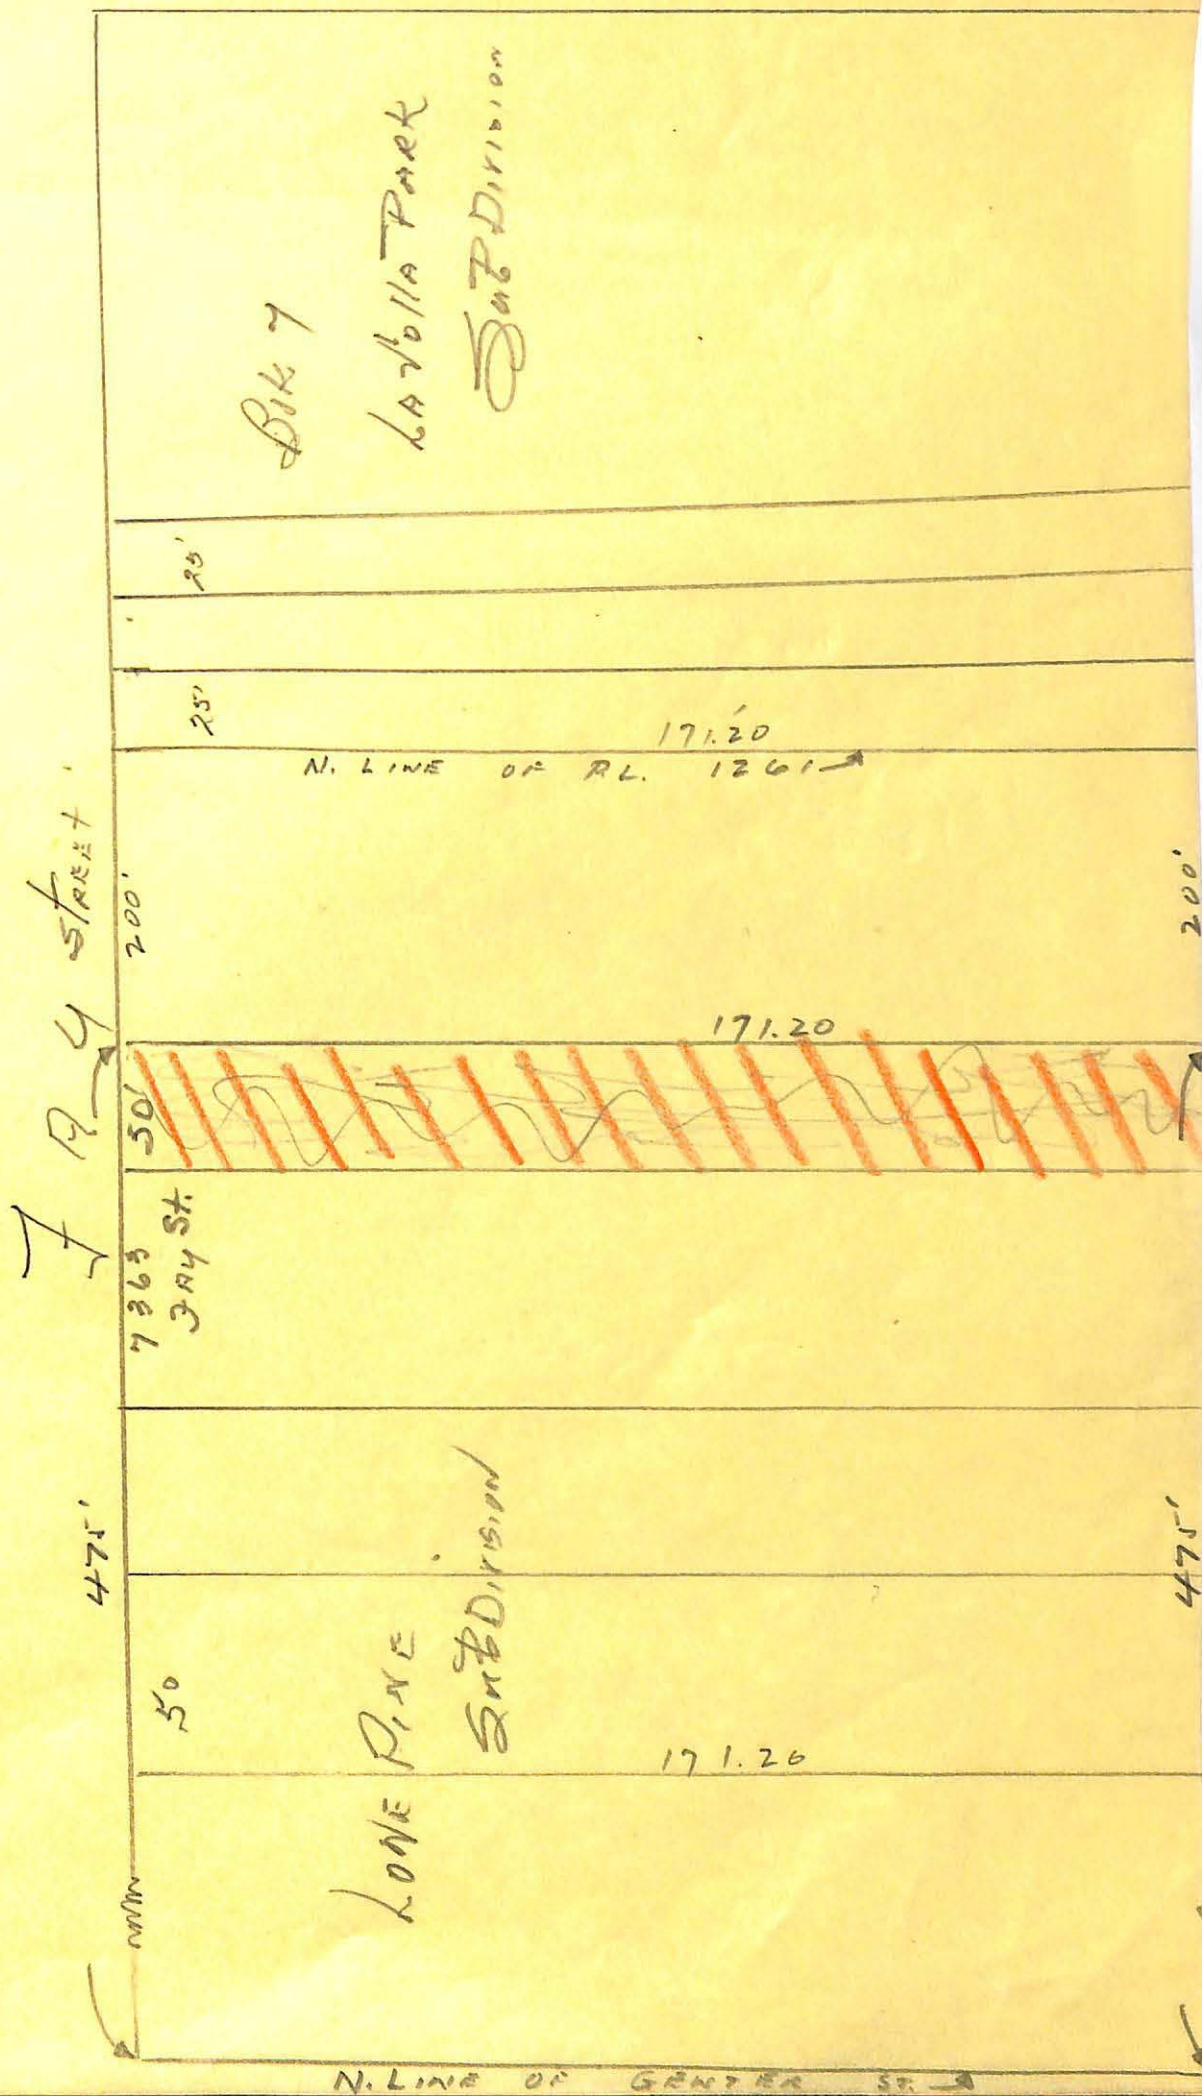 Blk 7
LA JOLLA PARK
SubDivision
25'
25'
171.20'
N. LINE OF P.L. 1261
FAY STREET
200'
200'
171.20
50'
7363
FAY St.
475'
475'
50
LONE PINE
SubDivision
171.20
N. LINE OF GENTER ST.